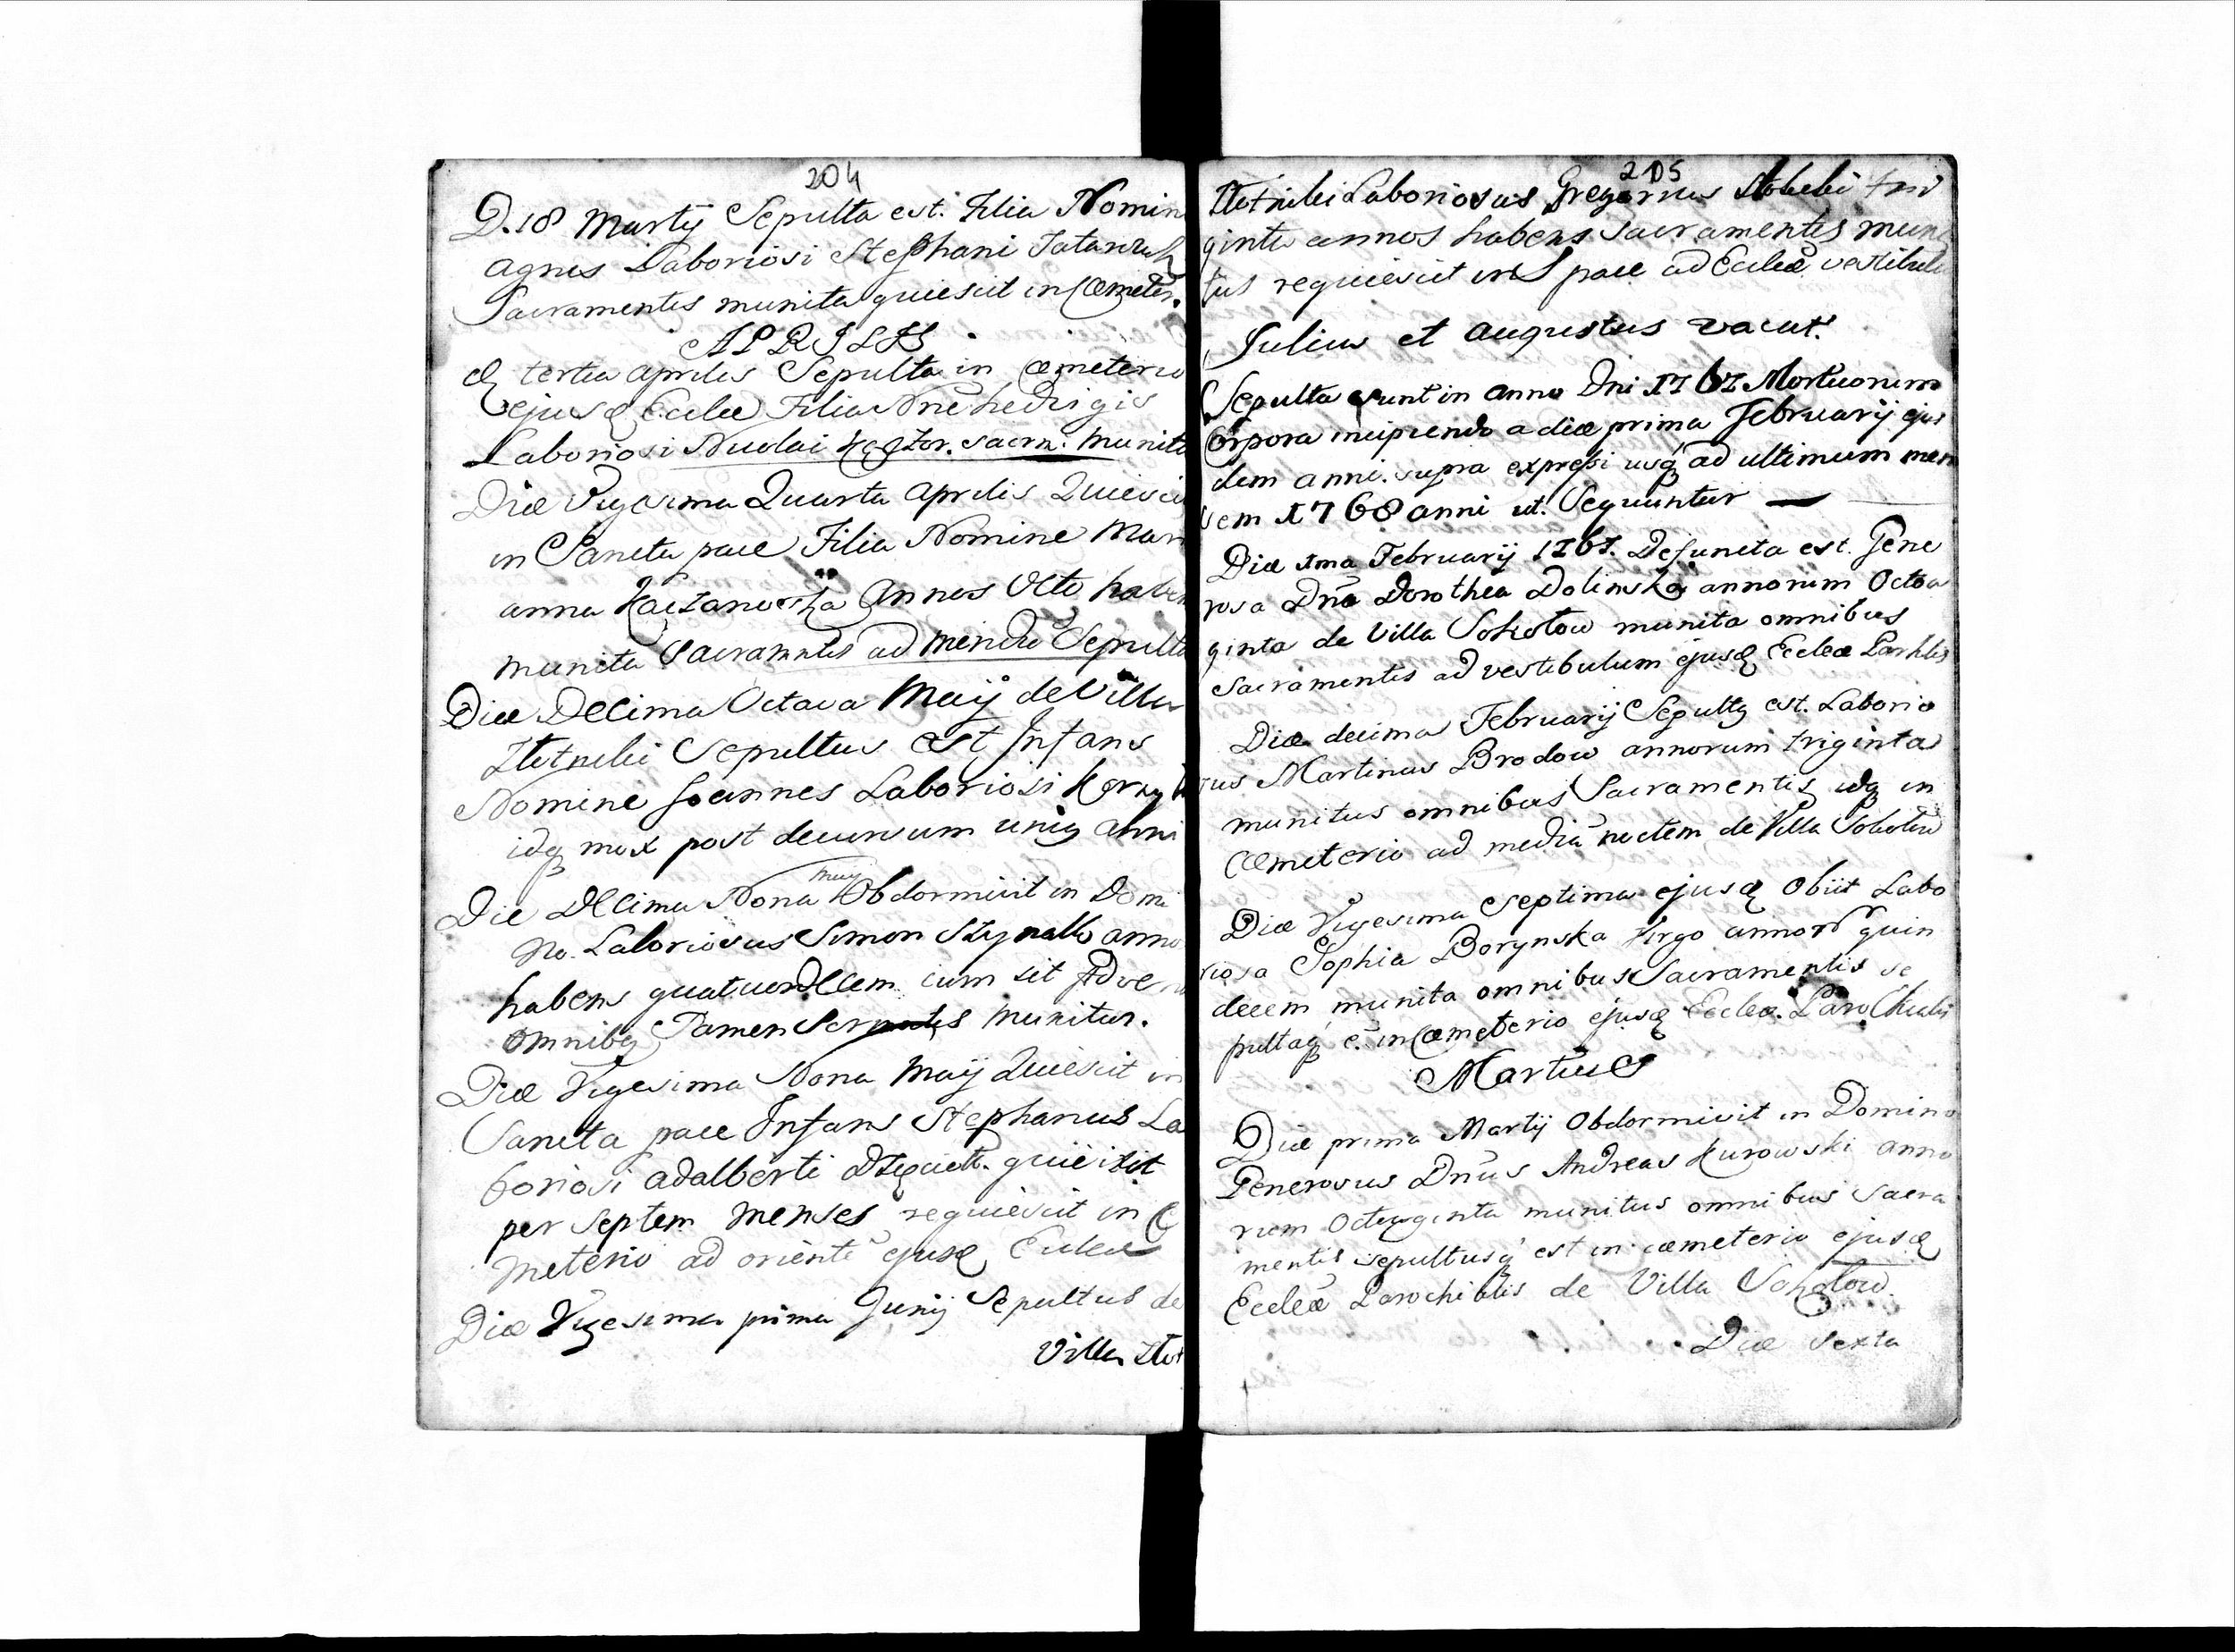 204
D. 18 Martij Sepulta est. Filia Nomin
Agnes Laboriosi Stephani
Sacramentis munita quiescit in Cœmeter.
APRILIS
tertia Aprilis Sepulta in Cœmeterio
ejusd Eccleæ Filia Nne Hedvigis
Laboriosi Nicolai sacrm. munita
Die Vigesima Quarta Aprilis Quiescit
in Sancta pace Filia Nomine Mari
anna Annos Octo haben
munita Sacramntis ad Sepulta
Die Decima Octava Maij de Villa
Sepultus est Infans
Nomine Joannes Laboriosi
idq mox post decursum uniq anni
Die Decima Nona Maij Obdormivit in Domi
no. Laboriosus Simon anno
habens quatuordecem cum sit Adve
omnibq Tamen munitus.
Die Vigesima Nona Maij Quiescit in
Sancta pace Infans Stephanus La
boriosi Adalberti qui vixit
per Septem Menses requiescit in Cœ
meterio ad orientē ejusd Eccleæ
Die Vigesima prima Junij Sepultus de
Villa
205
Laboriosus Gregorius tri
ginta annos habens Sacramentis muni
tus requiescit in S pace ad Eccleæ vestibulu
Julius et Augustus vacat.
Sepulta sunt in Anno Dni 1767 Mortuorum
Corpora incipiendo a die prima Februarij ejus
dem anni. supra expressi usq ad ultimum men
sem 1768 anni ut. Sequuntur
Die 1ma Februarij 1767. Defuncta est. Gene
rosa Dna Dorothea Dolinska annorum Octoa
ginta de Villa Sokołow munita omnibus
Sacramentis ad vestibulum ejusd Eccleæ Parchlis
Die decima Februarij Sepultq est. Laborio
sus Martinus Brodow annorum triginta
munitus omnibus Sacramentis idq in
Cœmeterio ad mediā noctem de Villa Sokołow
Die Vigesima septima ejusd Obiit Labo
riosa Sophia Borynska Virgo annorū quin
decem munita omnibus Sacramentis se
pultaq ē. in Cœmeterio ejusd Eccleæ. Parochialis
Martius
Die prima Martij Obdormivit in Domino
Generosus Dnus Andreas Kurowski anno
rum Octoginta munitus omnibus Sacra
mentis sepultusq est in cœmeterio ejusd
Eccleæ Parochiblis de Villa Sokołow.
Die Sexta